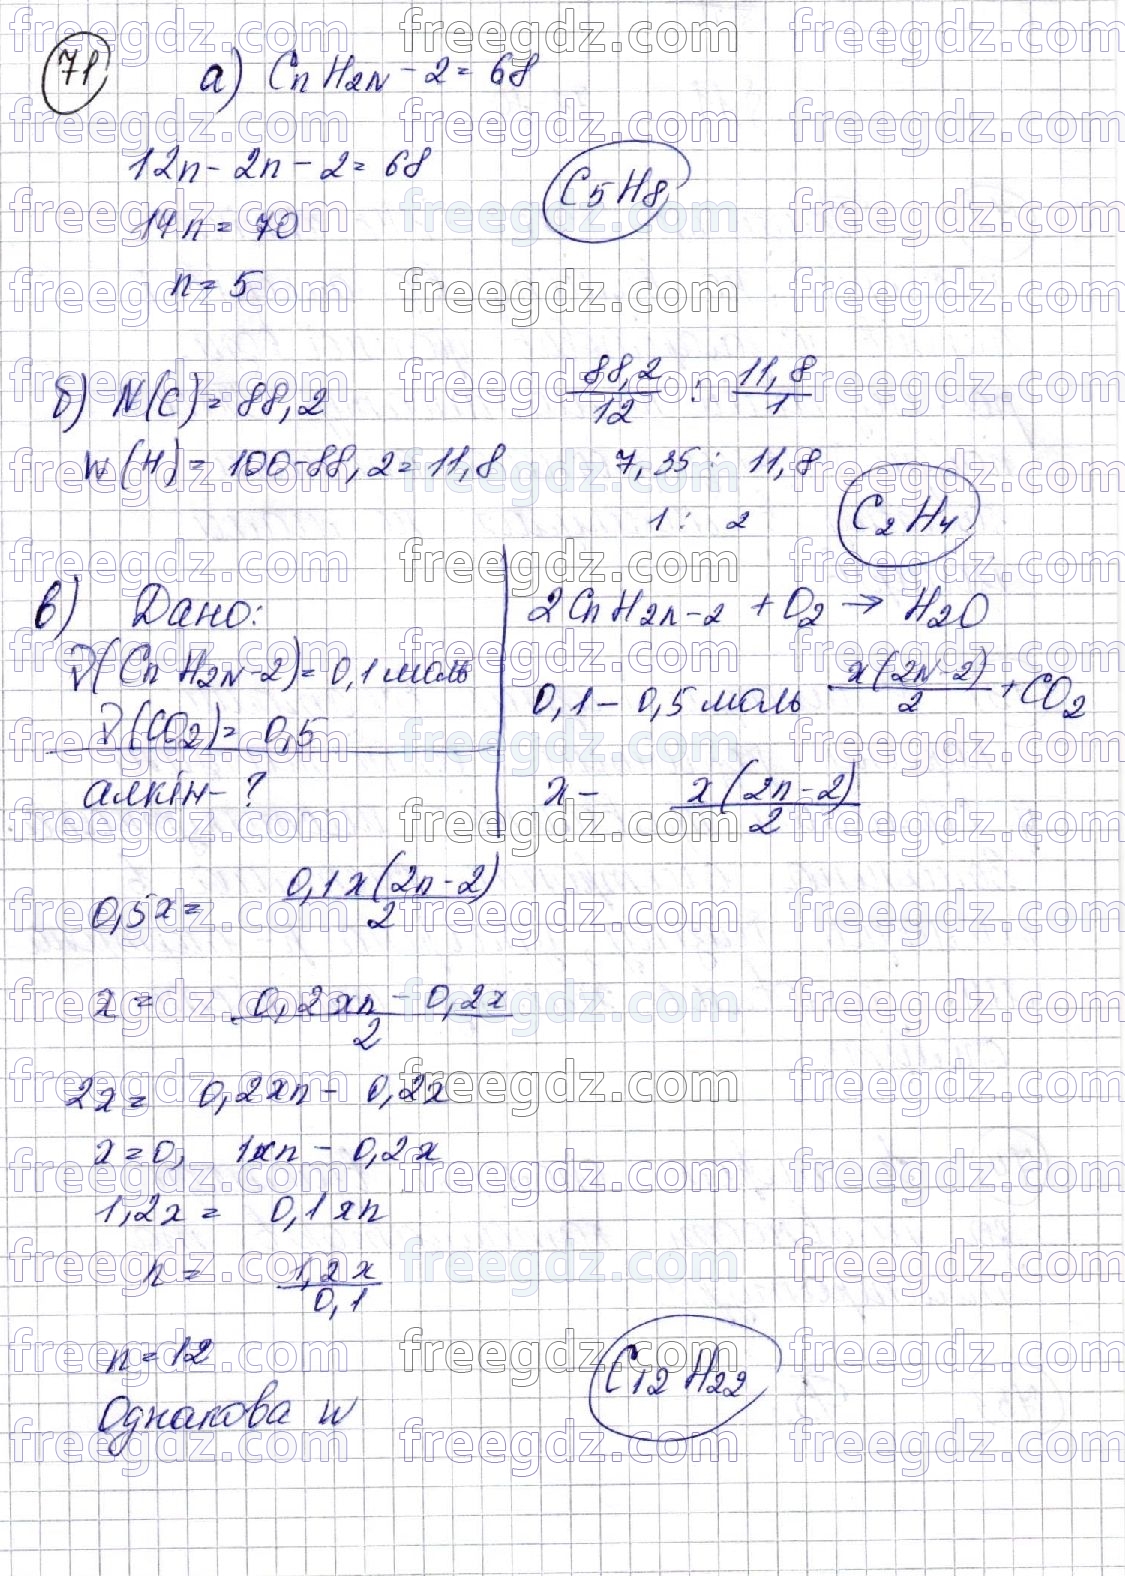 71
а) CnH2N-2=68
12n-2n-2=68
14n=70
n=5
C5H8
б) N(C)=88,2
W(H)=100-88,2=11,8
88,2/12 : 11,8/1
7,35 : 11,8
1 : 2
C2H4
в) Дано:
ν(CnH2N-2)=0,1 моль
ν(CO2)=0,5
алкін-?
2CnH2n-2 + O2 → H2O
0,1 - 0,5 моль x(2N-2)/2 + CO2
x - x(2n-2)/2
0,5x= 0,1x(2n-2)/2
x= 0,2xn-0,2x/2
2x= 0,2xn- 0,2x
x=0, 1xn-0,2x
1,2x= 0,1xn
n= 1,2x/0,1
n=12
C12H22
Однакова w
freegdz.com